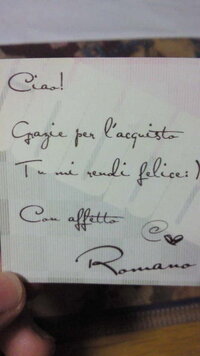 Ciao!
Grazie per l'acquisto
Tu mi rendi felice:)
Con affetto
Romano